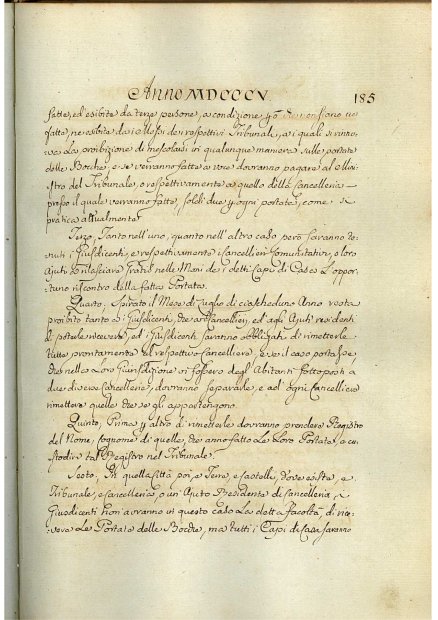 Anno MDCCCV. 185
fatte, ed esibite da terze persone, a condizione però che non siano nè
fatte, nè esibite dai Messi dei respettivi Tribunali, ai quali si rinno-
va la proibizione di mescolarsi in qualunque maniera sulle portate
delle Bocche, e se verranno fatte a voce dovranno pagare al Mini-
stro del Tribunale, o respettivamente a quello della Cancelleria
presso il quale verranno fatte, soldi due per ogni portata, come si
pratica attualmente.
Terzo, Tanto nell'uno, quanto nell'altro caso però saranno te-
nuti i Giusdicenti, e respettivamente i Cancellieri Comunitativi, o loro
Ajuti a rilasciare gratis nelle Mani dei detti Capi di Casa l'oppor-
tuno riscontro della fatta Portata.
Quarto, Spirato il Mese di Luglio di ciascheduno Anno resta
proibito tanto ai Giusdicenti, che ai Cancellieri, ed agli Ajuti residenti
di poterle ricevere, ed i Giusdicenti saranno obbligati di rimetterle
tutte prontamente al respettivo Cancelliere, e se il caso portasse
che nella Loro Giurisdizione vi fossero degli Abitanti sottoposti a
due diverse Cancellerie, dovranno separarle, e ad ogni Cancelliere
rimettere quelle che se gli appartengono.
Quinto, Prima per altro di rimetterle dovranno prendere Registro
del Nome, Cognome di quelle, che anno fatto Le Loro Portate, e cu-
stodire tal Registro nel Tribunale.
Sesto, In quelle Città poi, e Terre, e Castelli, dove esiste, e
Tribunale, e Cancelleria, o un Ajuto Residente di Cancelleria, i
Giusdicenti non avranno in questo caso La detta facoltà di rice-
vere Le Portate delle Bocche, ma tutti i Capi di Casa saranno